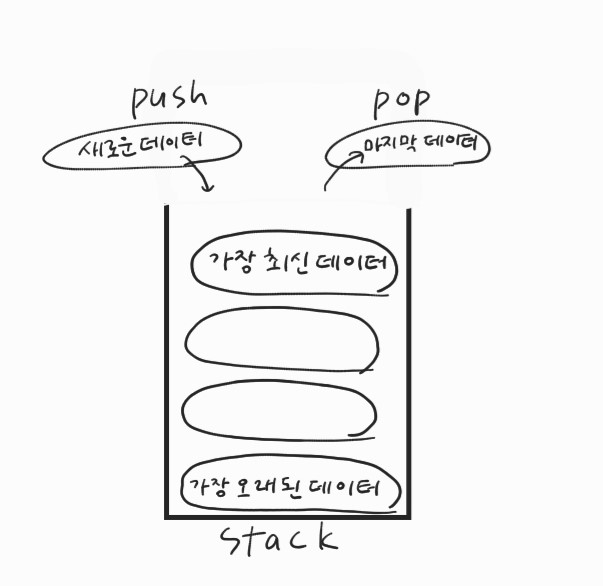 push
pop
새로운 데이터
마지막 데이터
가장 최신 데이터
가장 오래된 데이터
stack